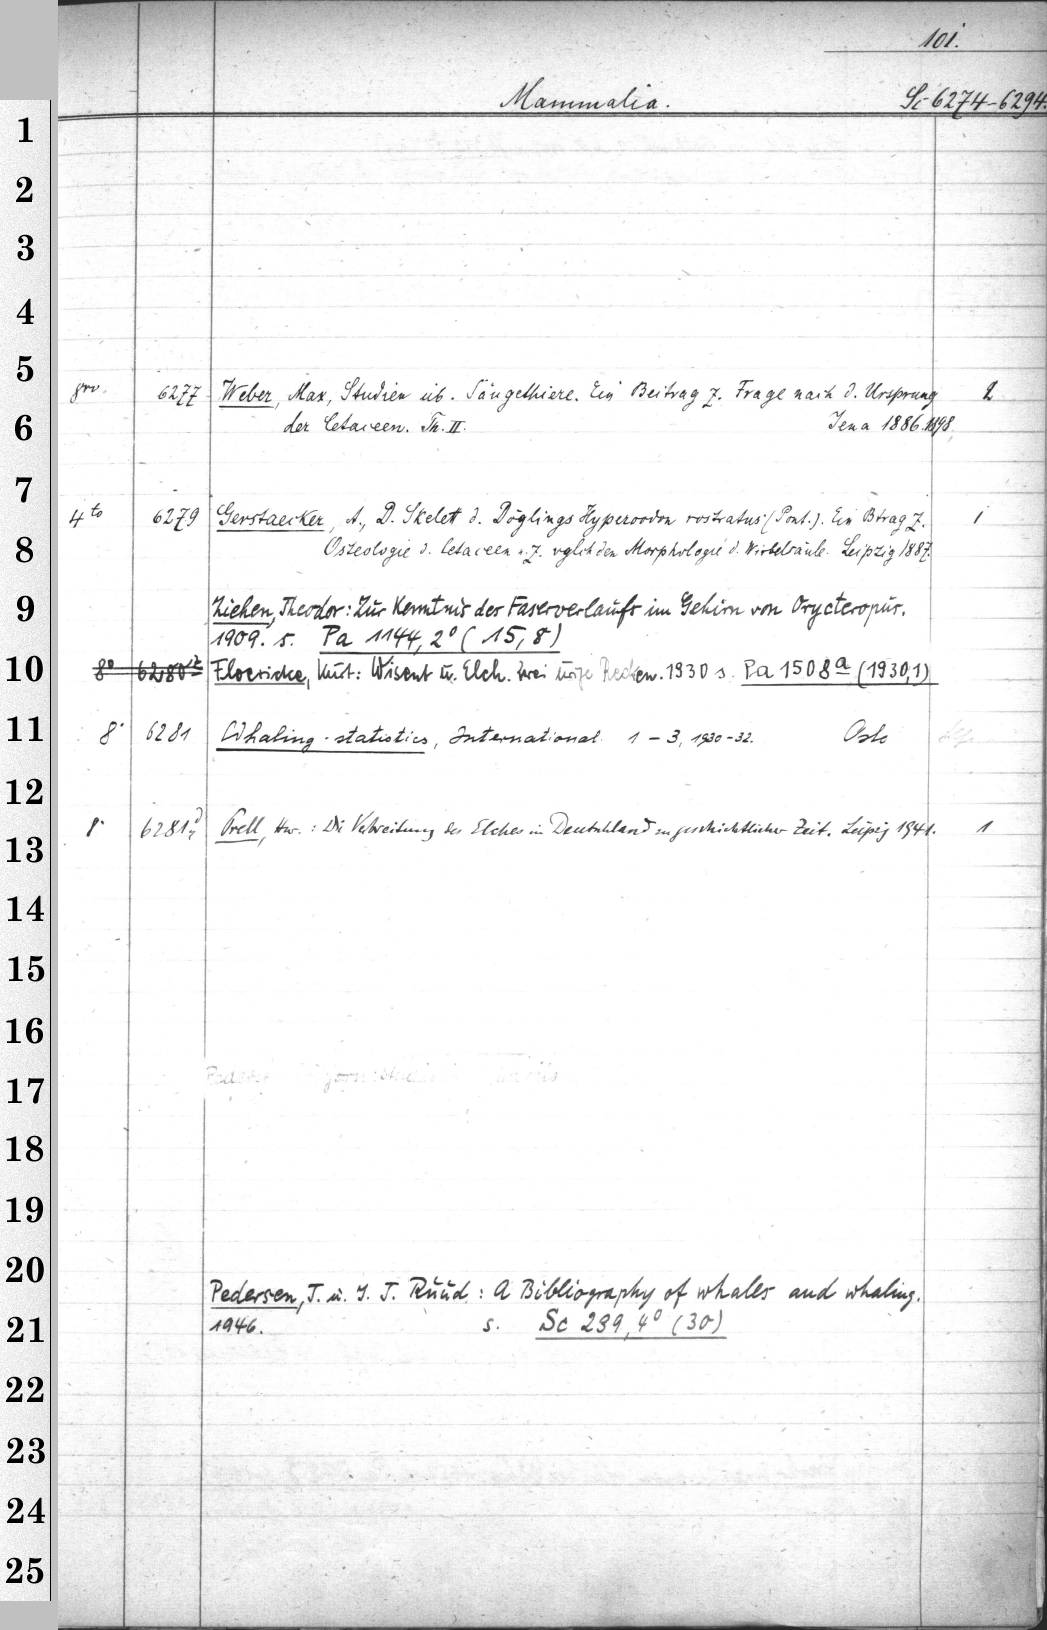 101.
Mammalia. Sc 6274-6294.
1
2
3
4
5
gro. 6277 Weber, Max, Studien üb. Säugethiere. Ein Beitrag z. Frage nach d. Ursprung 2
6
der Cetaceen. Th. II. Jena 1886.1898.
7
4to 6279 Gerstaecker, A., D. Skelett d. Döglings Hyperoodon rostratus (Pont.). Ein Btrag z. 1
8
Osteologie d. Cetaceen u. z. vglchden Morphologie d. Wirbelsäule. Leipzig 1887.
9
Ziehen, Theodor: Zur Kenntnis des Faserverlaufs im Gehirn von Orycteropus.
1909. s. Pa 1144, 2° (15, 8)
10
8° 6280 Floericke, Kurt: Wisent u. Elch. Zwei urige Recken. 1930 s. Pa 1508a (1930,1)
11
8° 6281 Whaling-statistics, International 1-3, 1930-32. Oslo
12
8° 6281 Prell, Hnr.: Die Verbreitung des Elches in Deutschland zu geschichtlicher Zeit. Leipzig 1941. 1
13
14
15
16
17
18
19
20
Pedersen, T. u. J. T. Ruud: A Bibliography of whales and whaling.
21
1946. s. Sc 239, 4° (30)
22
23
24
25